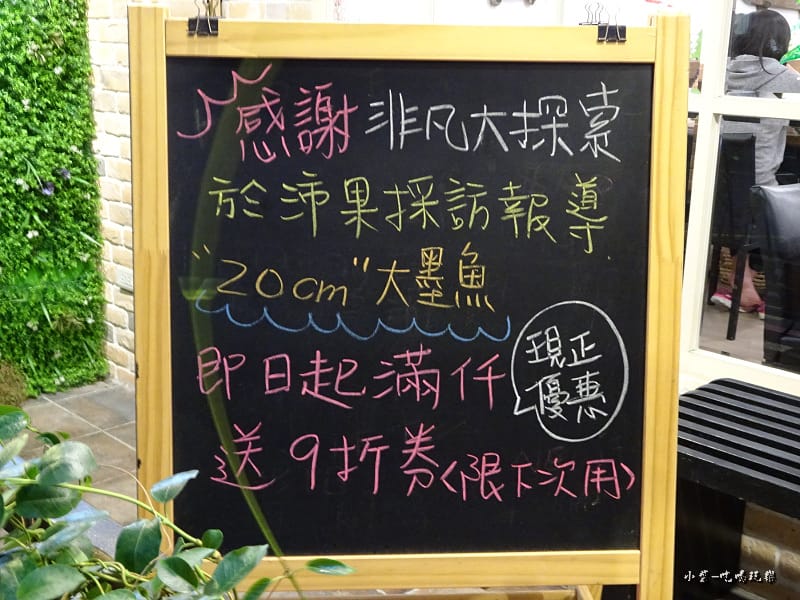 感謝非凡大探索
於沛果採訪報導
"20cm"大墨魚
現正
優惠
即日起滿仟
送9折券<限下次用>